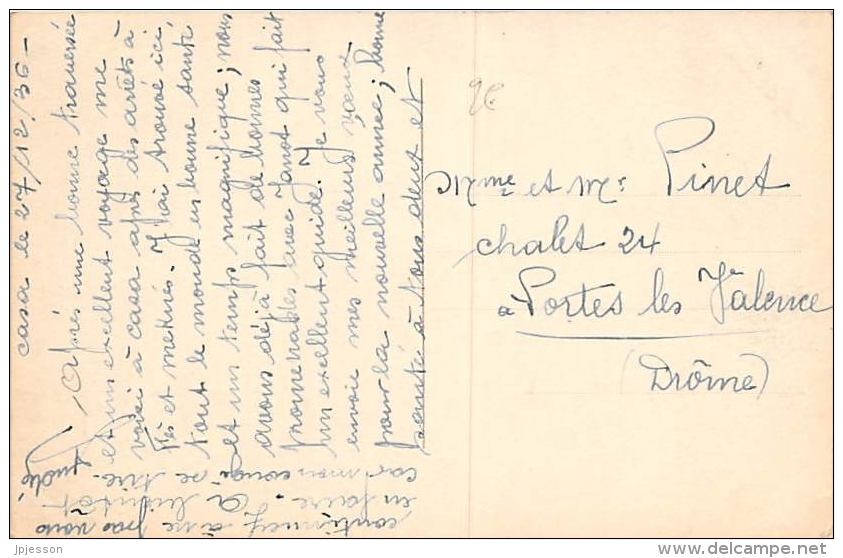 casa le 27/12/36 -
Après une bonne traversée
et un excellent voyage me
voici à casa après des arrêts à
Fès et meknès. J'ai trouvé ici
tout le monde en bonne santé
et un temps magnifique; nous
avons déjà fait de bonnes
promenades avec Janot qui fait
un excellent guide. Je vous
envoie mes meilleurs vœux
pour la nouvelle année; bonne
santé à tous deux et
continuez à ne pas vous
en faire. A bientôt
car mon congé se tire.
Mme et Mr Pinet
chalet 24
à Portes les Valence
(Drôme)
jpjesson
www.delcampe.net